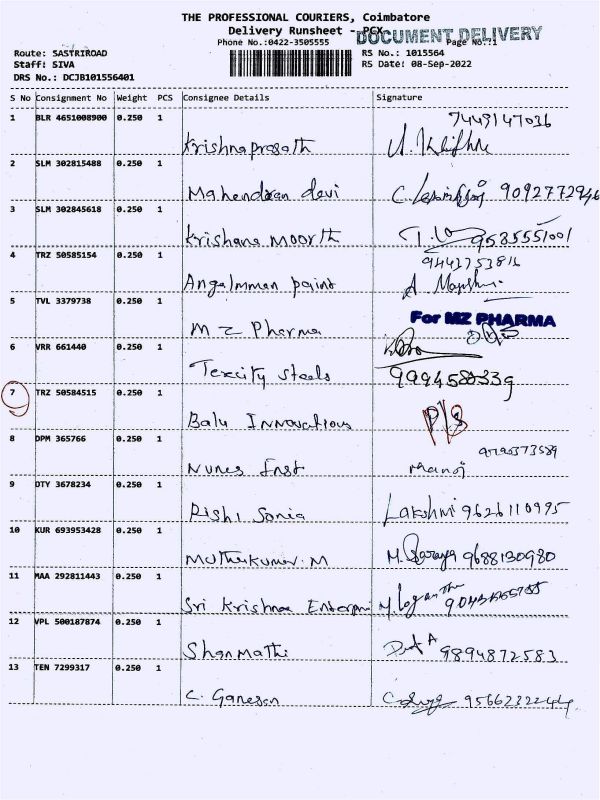 THE PROFESSIONAL COURIERS, Coimbatore
Delivery Runsheet - PCX
DOCUMENT DELIVERY
Phone No.:0422-3505555 Page No.:1
Route: SASTRIROAD RS No.: 1015564
Staff: SIVA RS Date: 08-Sep-2022
DRS No.: DCJB101556401
S No Consignment No Weight PCS Consignee Details Signature
1 BLR 4651008900 0.250 1 7449147036
Krishnaprasath
2 SLM 302815488 0.250 1
Mahendran devi 9092772946
3 SLM 302845618 0.250 1
Krishana Moorth 9585551001
4 TRZ 50585154 0.250 1 9443753816
Angalmman paint
5 TVL 3379738 0.250 1
For MZ PHARMA
M Z Pharma
6 VRR 661440 0.250 1
Texcity steels
7 TRZ 50584515 0.250 1
Balu Innovations P/S
8 DPM 365766 0.250 1 9790373589
Nunes Inst Manoj
9 OTY 3678234 0.250 1
Rishi Sonia Lakshmi 9626110995
10 KUR 693953428 0.250 1
Muthukumar.M M. Saraya 9688130980
11 MAA 292811443 0.250 1
Sri Krishna Enterpri M. loganathan
12 VPL 500187874 0.250 1
Shanmathi 9894872583
13 TEN 7299317 0.250 1
C. Ganesan 9566232244